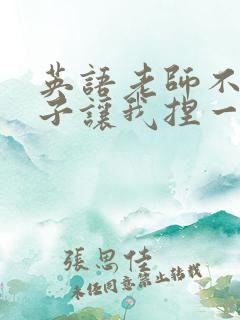 英語老師不
子讓我捏一
張思佳
未經同意禁止轉載